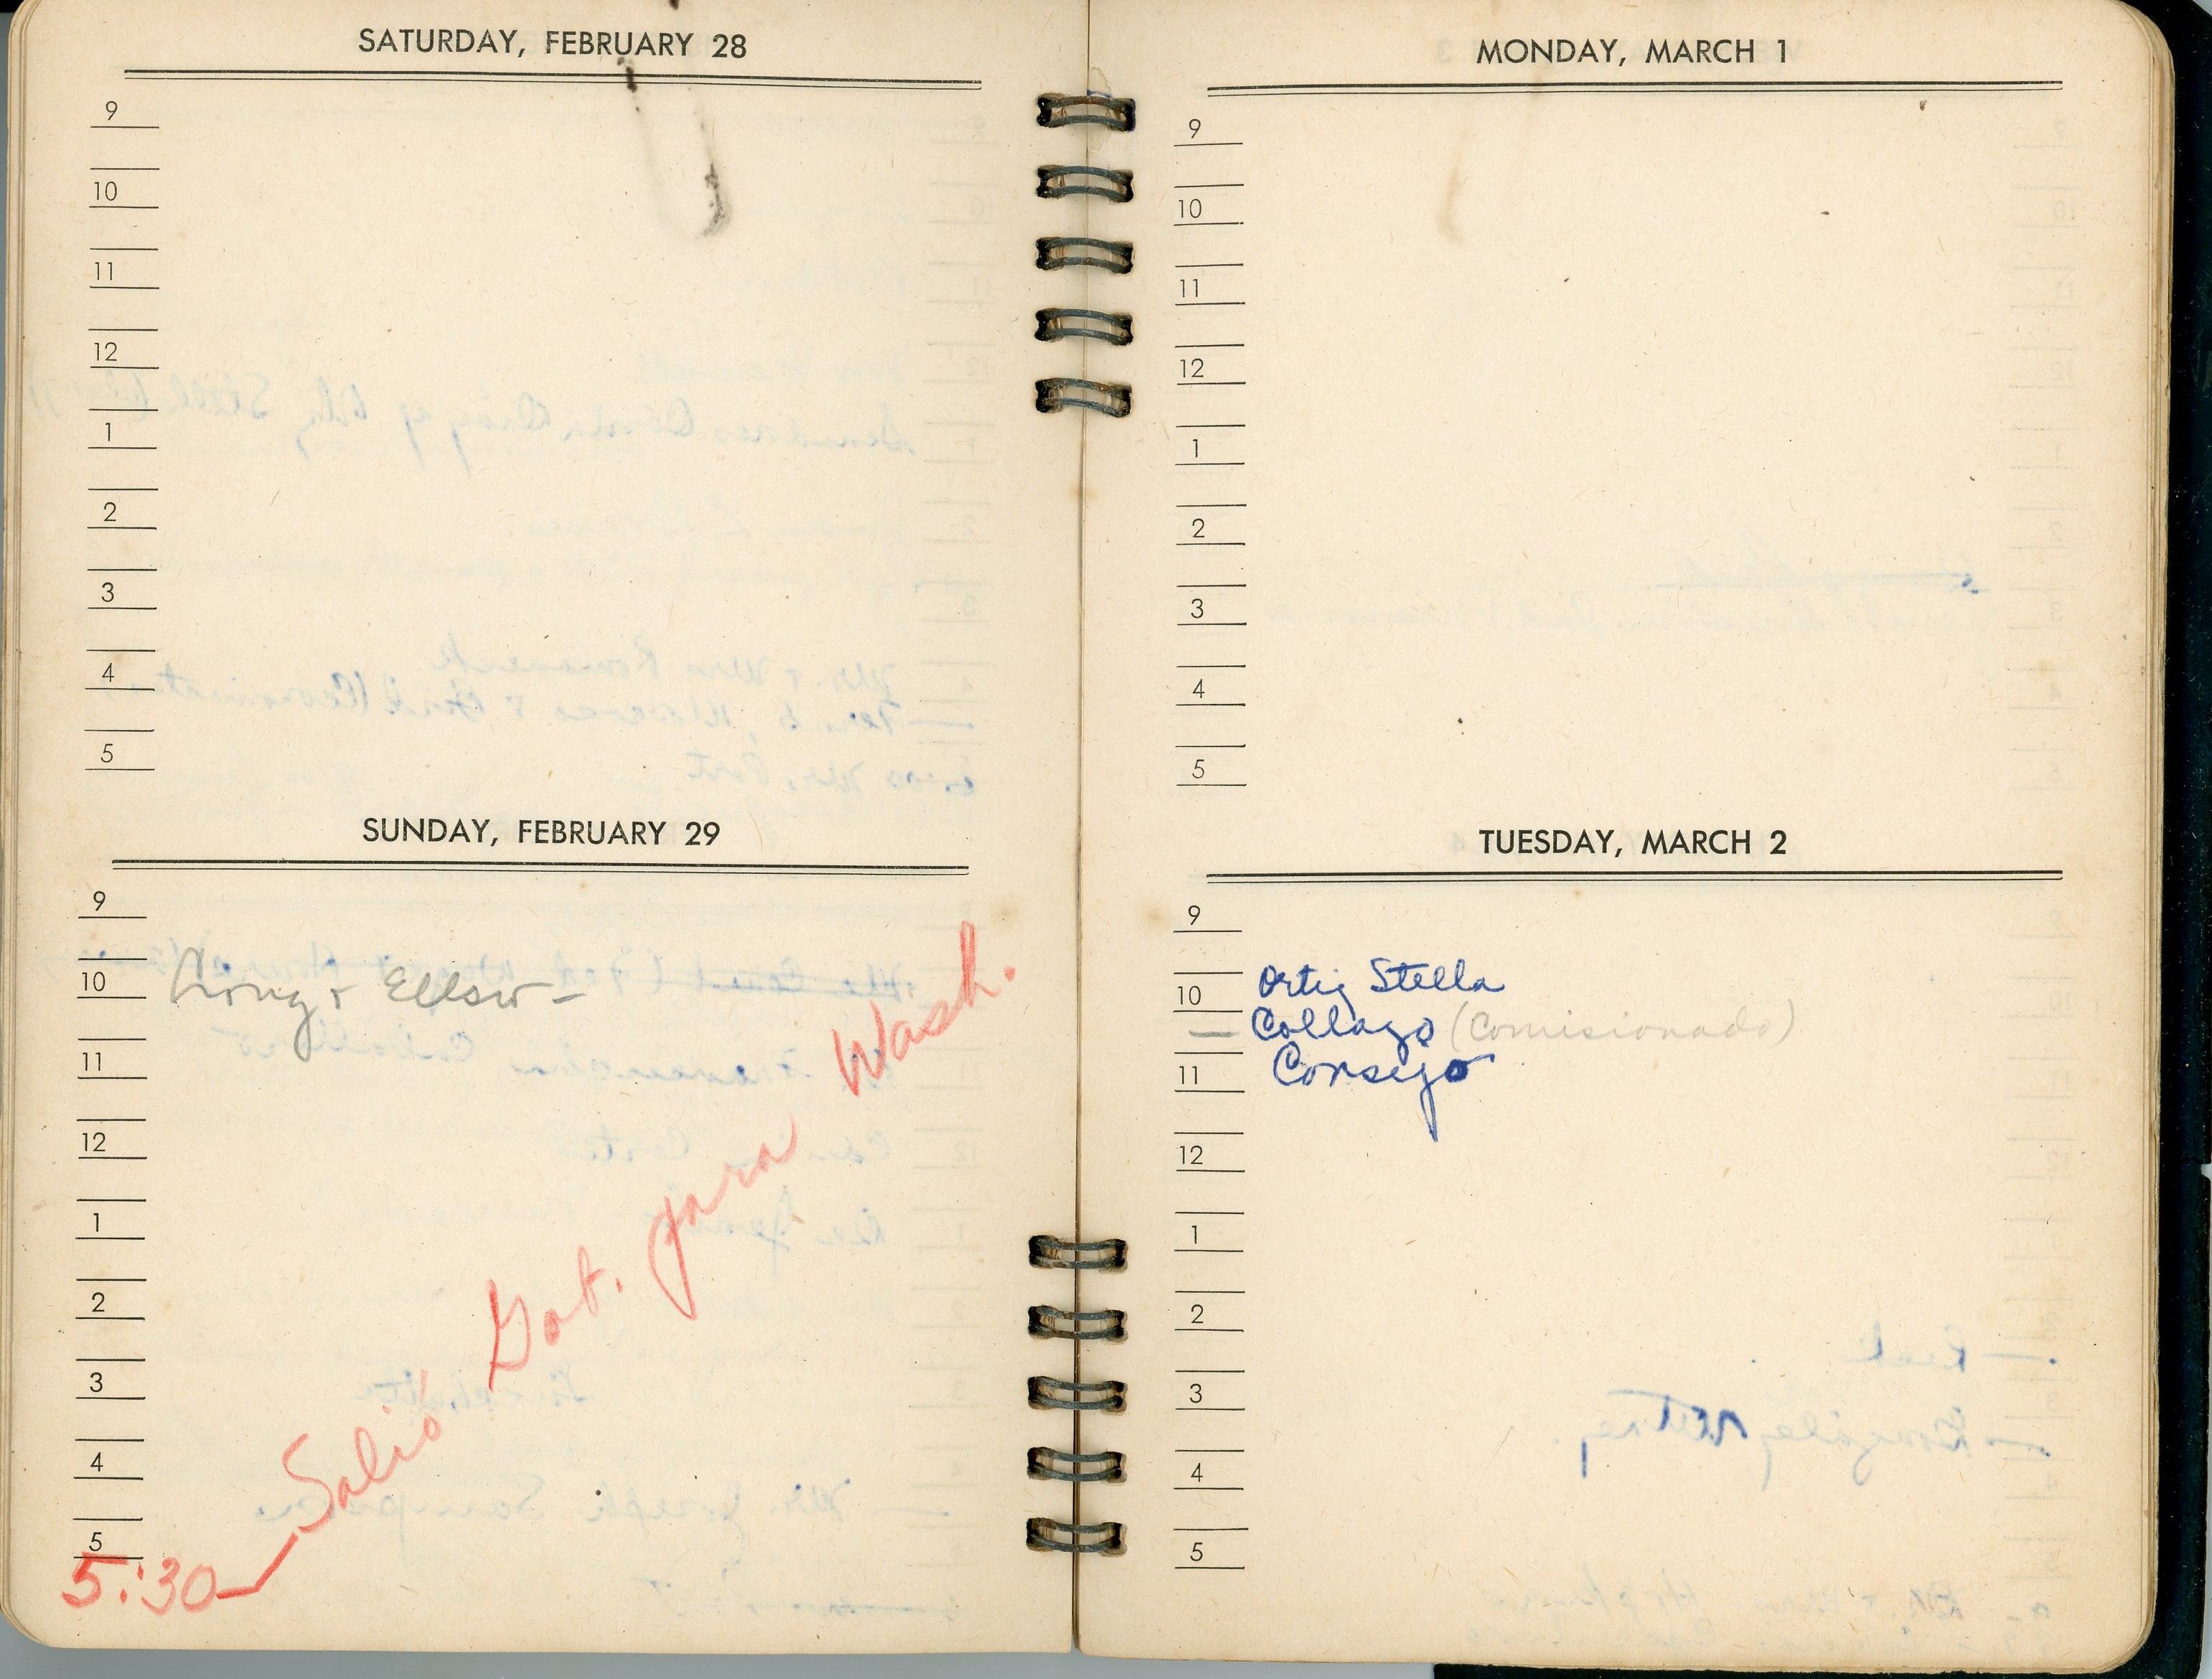 SATURDAY, FEBRUARY 28
9
10
11
12
1
2
3
4
5
SUNDAY, FEBRUARY 29
9
10 Long + Ellsw-
11
12
1
2
3
4
5
5:30— Salió Gob. para Wash.
MONDAY, MARCH 1
9
10
11
12
1
2
3
4
5
TUESDAY, MARCH 2
9
Ortiz Stella
10
— Collazo (Comisionado)
11 Consejo
12
1
2
3
4
5